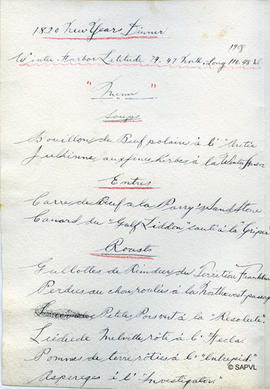 1820 New Year Dinner
1918
Winter Harbor Latitude 74.47 North, Long 110.48 W
"Menu"
Soups
Bouillon de Beuf polaire à l'
Julienne aux fines herbes à la Winter
Entres
Carre de Beuf a la Parry's Sand Stone
Canard du "Golf Liddon" sauté à la Griper
Roasts
de Reindeer du Territoire Franklin
Perdus au chou roulés à la Northwest passage
Petits Pois vert à la Resolute
de Melville rôté à l'Hecla
Pomms de terre rôties à l'"Intrepid"
Asperges à l'Investigator
© SAPVL